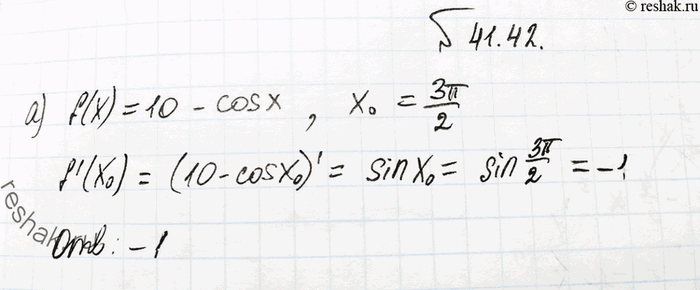 © reshak.ru
√ 41.42.
а) f(x) = 10 - cosx , x₀ = 3π/2
f'(x₀) = (10 - cosx₀)' = sinx₀ = sin 3π/2 = -1
reshak.ru
Отв: -1